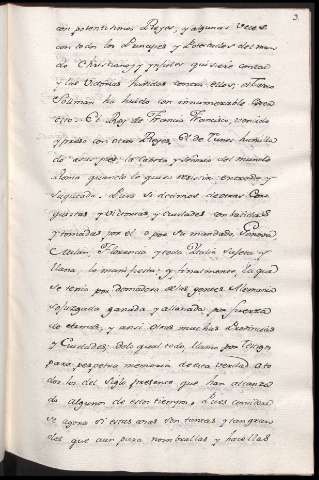 3
con potentisimos Reyes, y algunas veces
con todos los Principes y Potestades del mun
do Christianos, y ynfieles quisiera contar
y las victorias havidas contra ellos, al Turco
Soliman ha huido con innumerable Exer
cito: El Rey de Francia Francisco, vencido
y preso con otros Reyes, El de Tunez humilla
do a sus pies: la Cabeza y Señora del mundo
Roma quando lo quiso resistir, entrada y
saqueada. Pues si decimos de otras Con
quistas, y victorias, y Ciudades combatidas
y tomadas por el o por su mandado, Genova
Milan, Florencia y toda Italia sujeta y
llana, lo manifiesta; y finalmente, la que
se tenia por domadora de las gentes Alemania
sojuzgada ganada y allanada por fuerza
de armas, y ansi otras muchas Provincias
y Ciudades: Dolo qual todo, llamo por testigo
para perpetua memoria de esta verdad a to
dos los del Siglo presente que han alcanza
do algunos de estos tiempos. Pues considere
se agora si estas cosas son tantas y tan gran
des que aun para nombrallas y hacellas